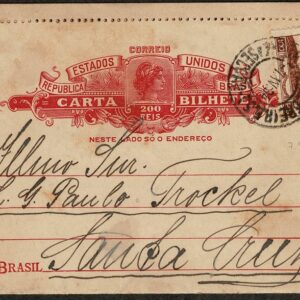 CORREIO
ESTADOS UNIDOS
REPUBLICA
CARTA BILHE
200
REIS
NESTE LADO SÓ O ENDEREÇO
Illmo Snr.
G. Paulo Trockel
Santa Cruz
BRASIL